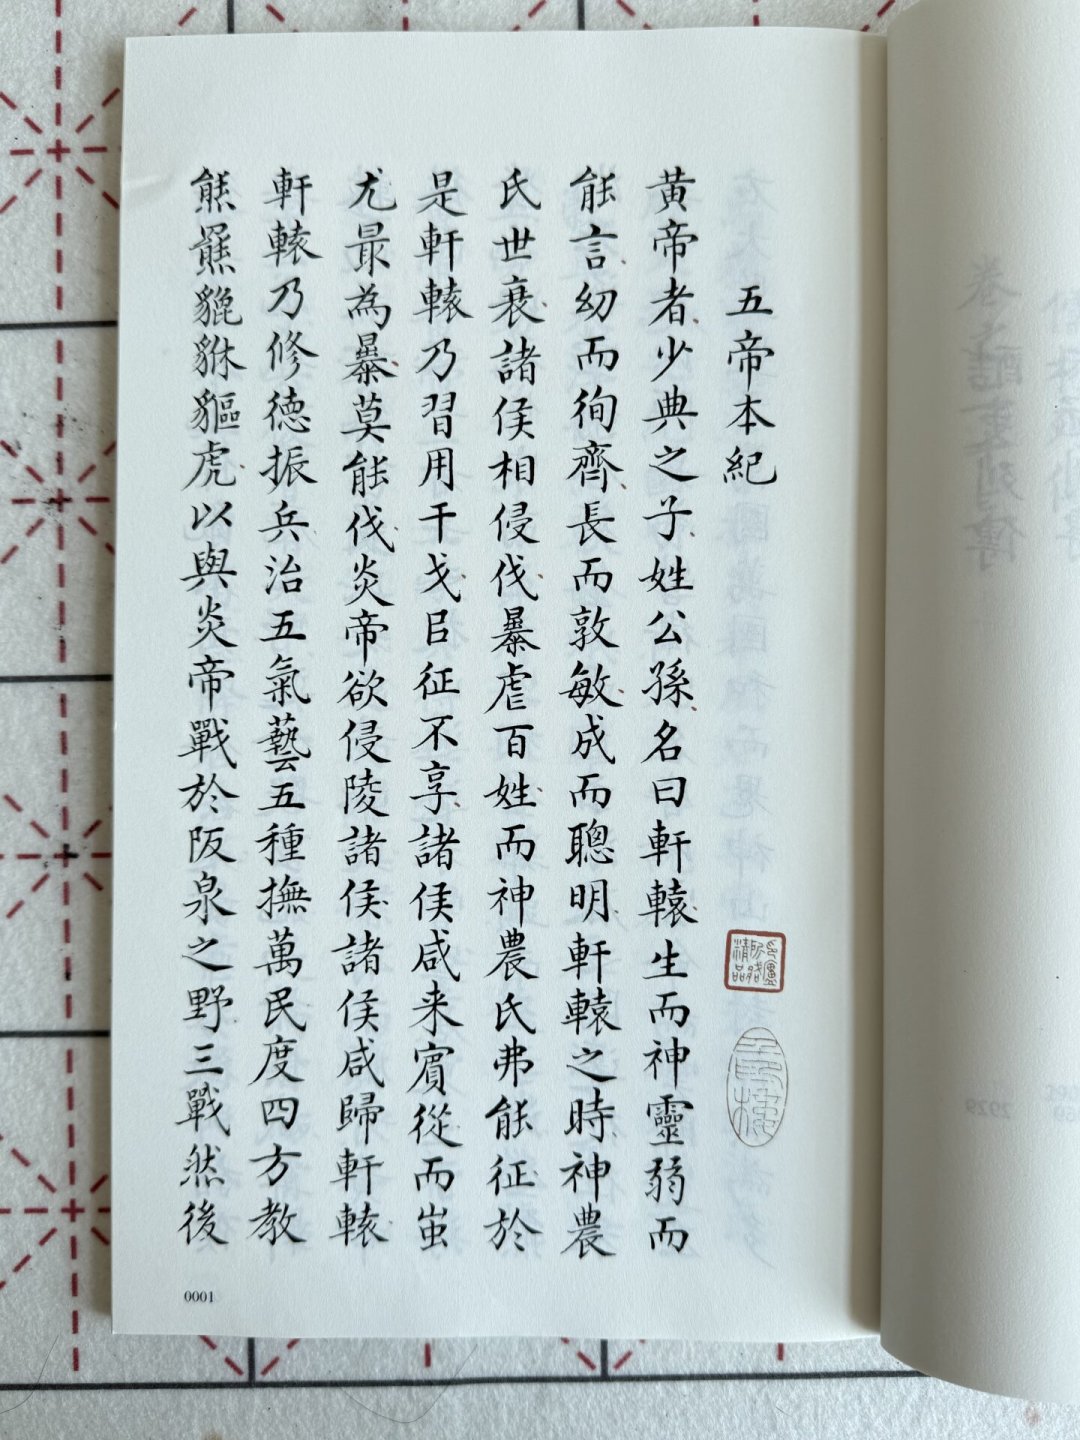 五帝本紀
黃帝者少典之子姓公孫名曰軒轅生而神靈弱而
能言幼而徇齊長而敦敏成而聰明軒轅之時神農
氏世衰諸侯相侵伐暴虐百姓而神農氏弗能征於
是軒轅乃習用干戈㠯征不享諸侯咸来賓從而蚩
尤最為暴莫能伐炎帝欲侵陵諸侯諸侯咸歸軒轅
軒轅乃修德振兵治五氣藝五種撫萬民度四方教
熊羆貔貅貙虎以與炎帝戰於阪泉之野三戰然後
0001